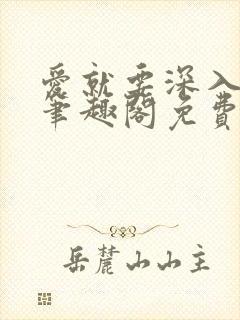 爱就要深入
笔趣阁免费
岳麓山山主